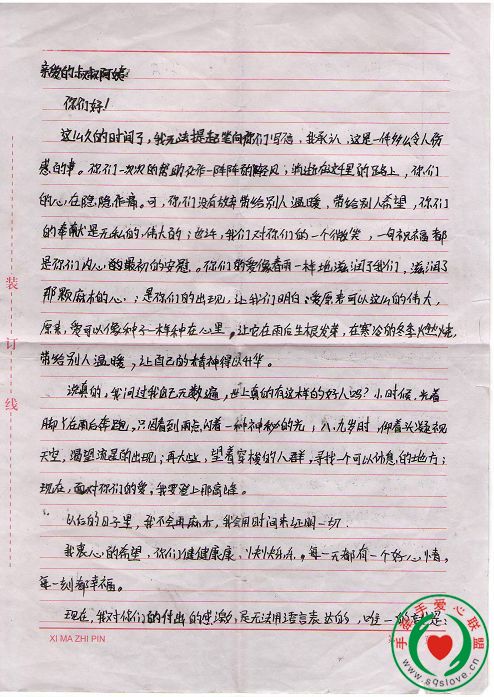 亲爱的叔叔阿姨
你们好！
这么久的时间了，我无法提起笔向你们写信，我承认，这是一件多么令人伤
感的事。你们一次次的帮助化作一阵阵的暖风；消逝在这里的路上，你们
的心在隐隐作痛。可，你们没有放弃带给别人温暖，带给别人希望，你们
的奉献是无私的，伟大的；也许，我们对你们的一个微笑，一句祝福都
是你们内心的最初的安慰。你们的爱像春雨一样地滋润了我们，滋润了
那颗麻木的心；是你们的出现，让我们明白：爱原来可以这么的伟大，
原来，爱可以像种子一样种在心里，让它在雨后生根发芽，在寒冷的冬季燃烧，
带给别人温暖，让自己的精神得以升华。
说真的，我问过我自己无数遍，世上真的有这样的好人吗？小时候，光着
脚丫在雨后奔跑，只因看到雨点闪着一种神秘的光，八、九岁时，仰着头凝视
天空，渴望流星的出现；再大些，望着穿梭的人群，寻找一个可以休息的地方；
现在，面对你们的爱，我要登上那高峰。
以后的日子里，我不会再麻木，我会用时间来证明一切.
我衷心的希望，你们健健康康，快快乐乐。每一天都有一个好心情，
每一刻都幸福。
现在，我对你们的付出的感激，是无法用语言表达的，唯一的就是：
装
订
线
XI MA ZHI PIN
手牵手爱心联盟
www.sqslove.cn